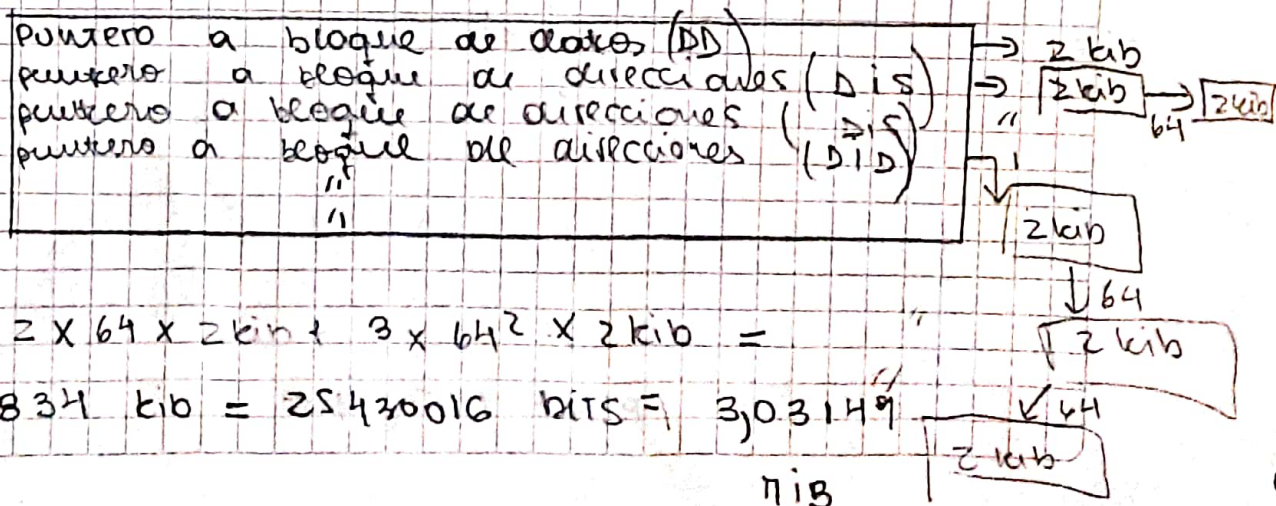 puntero a bloque de datos (DD) → 2 kib
puntero a bloque de direcciones (DiS) → 2kib → 64 2kib
puntero a bloque de direcciones (DiS) "
puntero a bloque de direcciones (DiD)
"
"
2 kib
↓ 64
2 x 64 x 2 kib + 3 x 64² x 2 kib = "
2 kib
834 kib = 25430016 bits = 3,03149 "
↙ 64
2 kib
MiB